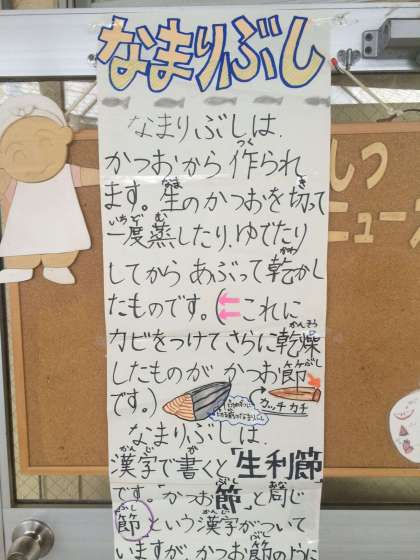 なまりぶし
なまりぶしは、
かつおから作られ
ます。生のかつおを切って
一度蒸したり、ゆでたり
してからあぶって乾かし
たものです。(これに
カビをつけてさらに乾燥
したものがかつお節
です。)
カッチカチ
なまりぶしは
漢字で書くと「生利節」
です。「かつお節」と同じ
節という漢字がついて
いますが、かつお節のように
しつ
ニュース